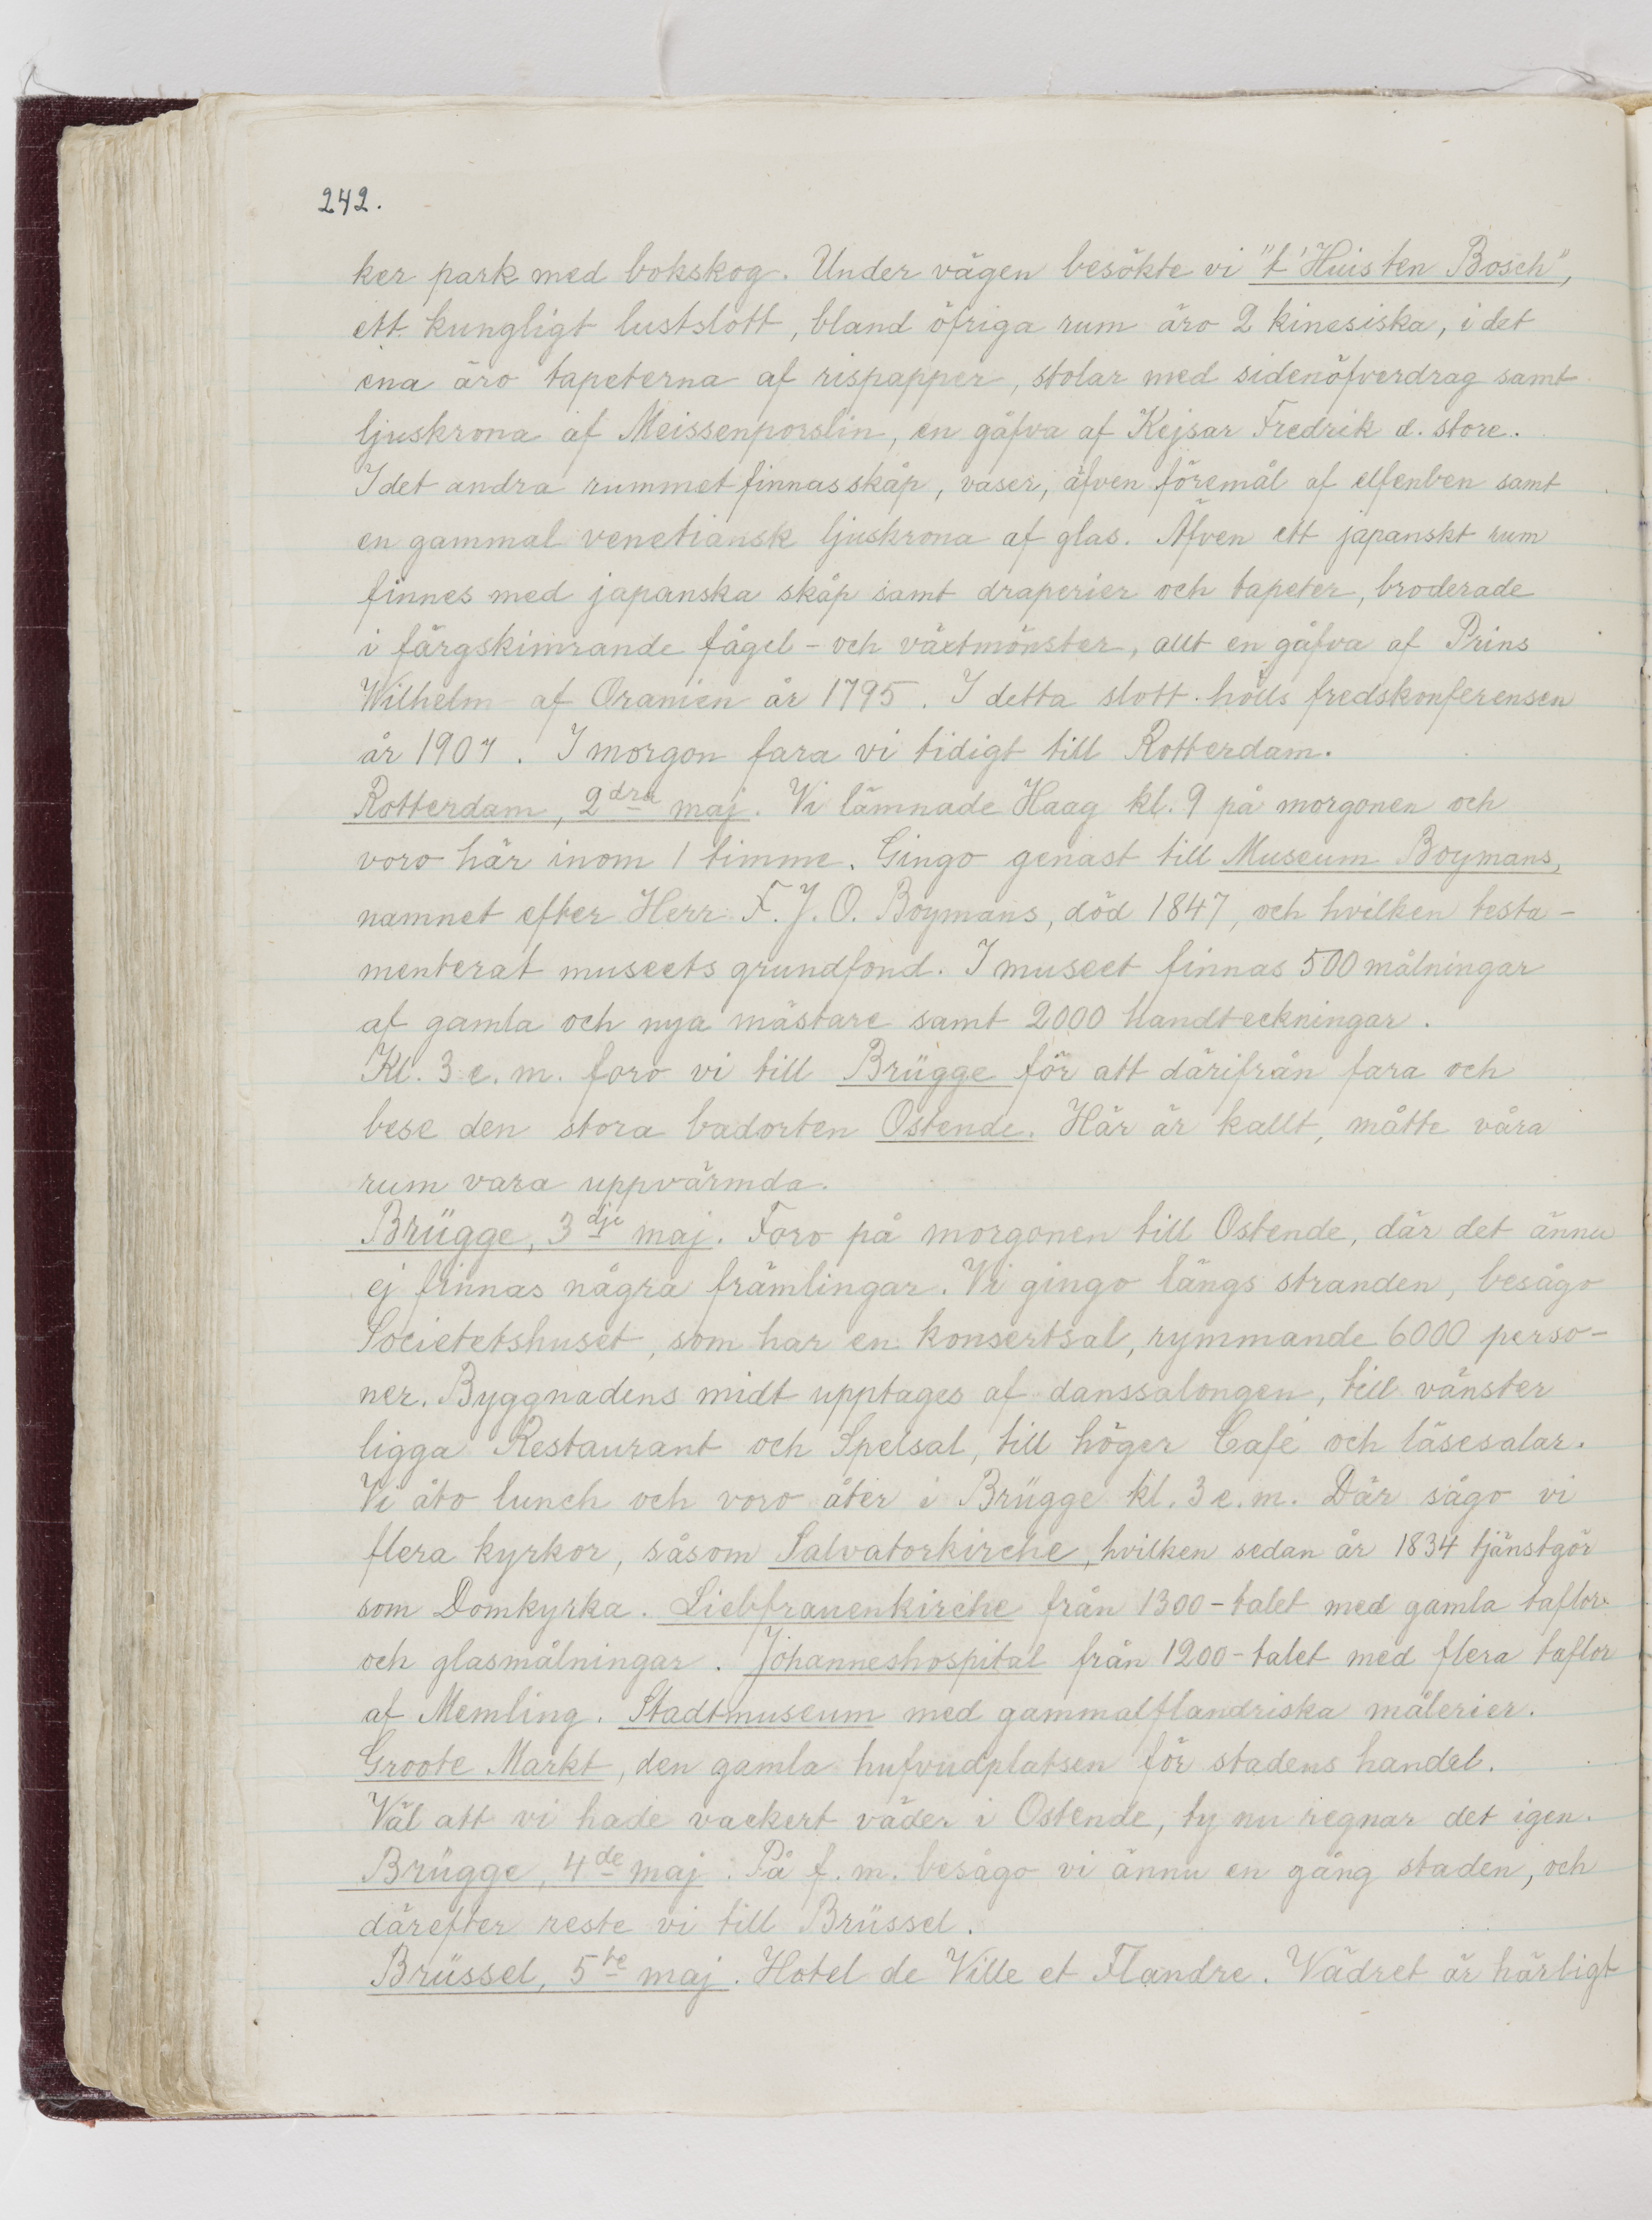 242.
ker park med bokskog. Under vägen besökte vi "t'Huis ten Bosch",
ett kungligt lustslott, bland öfriga rum äro 2 kinesiska, i det
ena äro tapeterna af rispapper, stolar med sidenöfverdrag samt
ljuskrona af Meissenporslin, en gåfva af Kejsar Fredrik d. store.
I det andra rummet finnas skåp, vaser, äfven föremål af elfenben samt
en gammal venetiansk ljuskrona af glas. Äfven ett japanskt rum
finnes med japanska skåp samt draperier och tapeter, broderade
i färgskimrande fågel- och växtmönster, allt en gåfva af Prins
Wilhelm af Oranien år 1795. I detta slott hölls fredskonferensen
år 1907. I morgon fara vi tidigt till Rotterdam.
Rotterdam, 2dra maj. Vi lämnade Haag kl. 9 på morgonen och
voro här inom 1 timme. Gingo genast till Museum Boymans,
namnet efter Herr F. J. O. Boymans, död 1847, och hvilken testa-
menterat museets grundfond. I museet finnas 500 målningar
af gamla och nya mästare samt 2000 handteckningar.
Kl. 3 e. m. foro vi till Brügge för att därifrån fara och
bese den stora badorten Ostende. Här är kallt, måtte våra
rum vara uppvärmda.
Brügge, 3dje maj. Foro på morgonen till Ostende, där det ännu
ej finnas några främlingar. Vi gingo längs stranden, besågo
Societetshuset, som har en konsertsal, rymmande 6000 perso-
ner. Byggnadens midt upptages af danssalongen, till vänster
ligga Restaurant och Spelsal, till höger Café och läsesalar.
Vi åto lunch och voro åter i Brügge kl. 3 e. m. Där sågo vi
flera kyrkor, såsom Salvatorkirche, hvilken sedan år 1834 tjänstgör
som Domkyrka. Liebfrauenkirche från 1300-talet med gamla taflor
och glasmålningar. Johanneshospital från 1200-talet med flera taflor
af Memling. Stadtmuseum med gammalflandriska målerier.
Groote Markt, den gamla hufvudplatsen för stadens handel.
Väl att vi hade vackert väder i Ostende, ty nu regnar det igen.
Brügge, 4de maj. På f. m. besågo vi ännu en gång staden, och
därefter reste vi till Brüssel.
Brüssel, 5te maj. Hotel de Ville et Flandre. Vädret är härligt